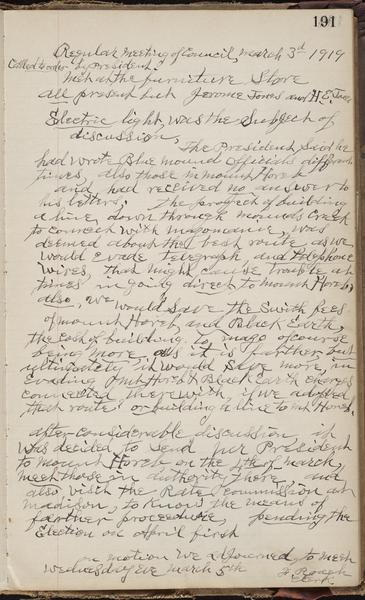 191
Regular Meeting of Council, March 3rd 1919
Called to order by President.
Met at the furniture Store
all present but Jerome Jones and H.E.
Electric light was the Subject of
discussion,
The President Said he
had wrote Blue mound officials different
times, also those in Mount Horeb
and had received no answer to
his letters; The prospect of building
a line down through mounds Creek
to connect with Mazomanie, was
deemed about the best route, as we
would evade telegraph and telephone
wires, that might cause trouble at
times in going direct to Mount Horeb,
also, we would save the Switch fees
of Mount Horeb, and Black Earth,
the Cost of building to Mazo of course
being more as it is further but
ultimately it would Save more, in
evading Mt Horeb & Black Earth charges
connected therewith, if we adopted
that route or building a line to Mt Horeb.
after considerable discussion it
was decided to send our President
to Mount Horeb on the 4th of March,
meet those in authority there, and
also visit the Rate Commission at
Madison, to know the means of
farther proceedure, pending the
Election on April first
on motion we adjourned to meet
Wednesday eve March 5th
J. Roach
Clerk.